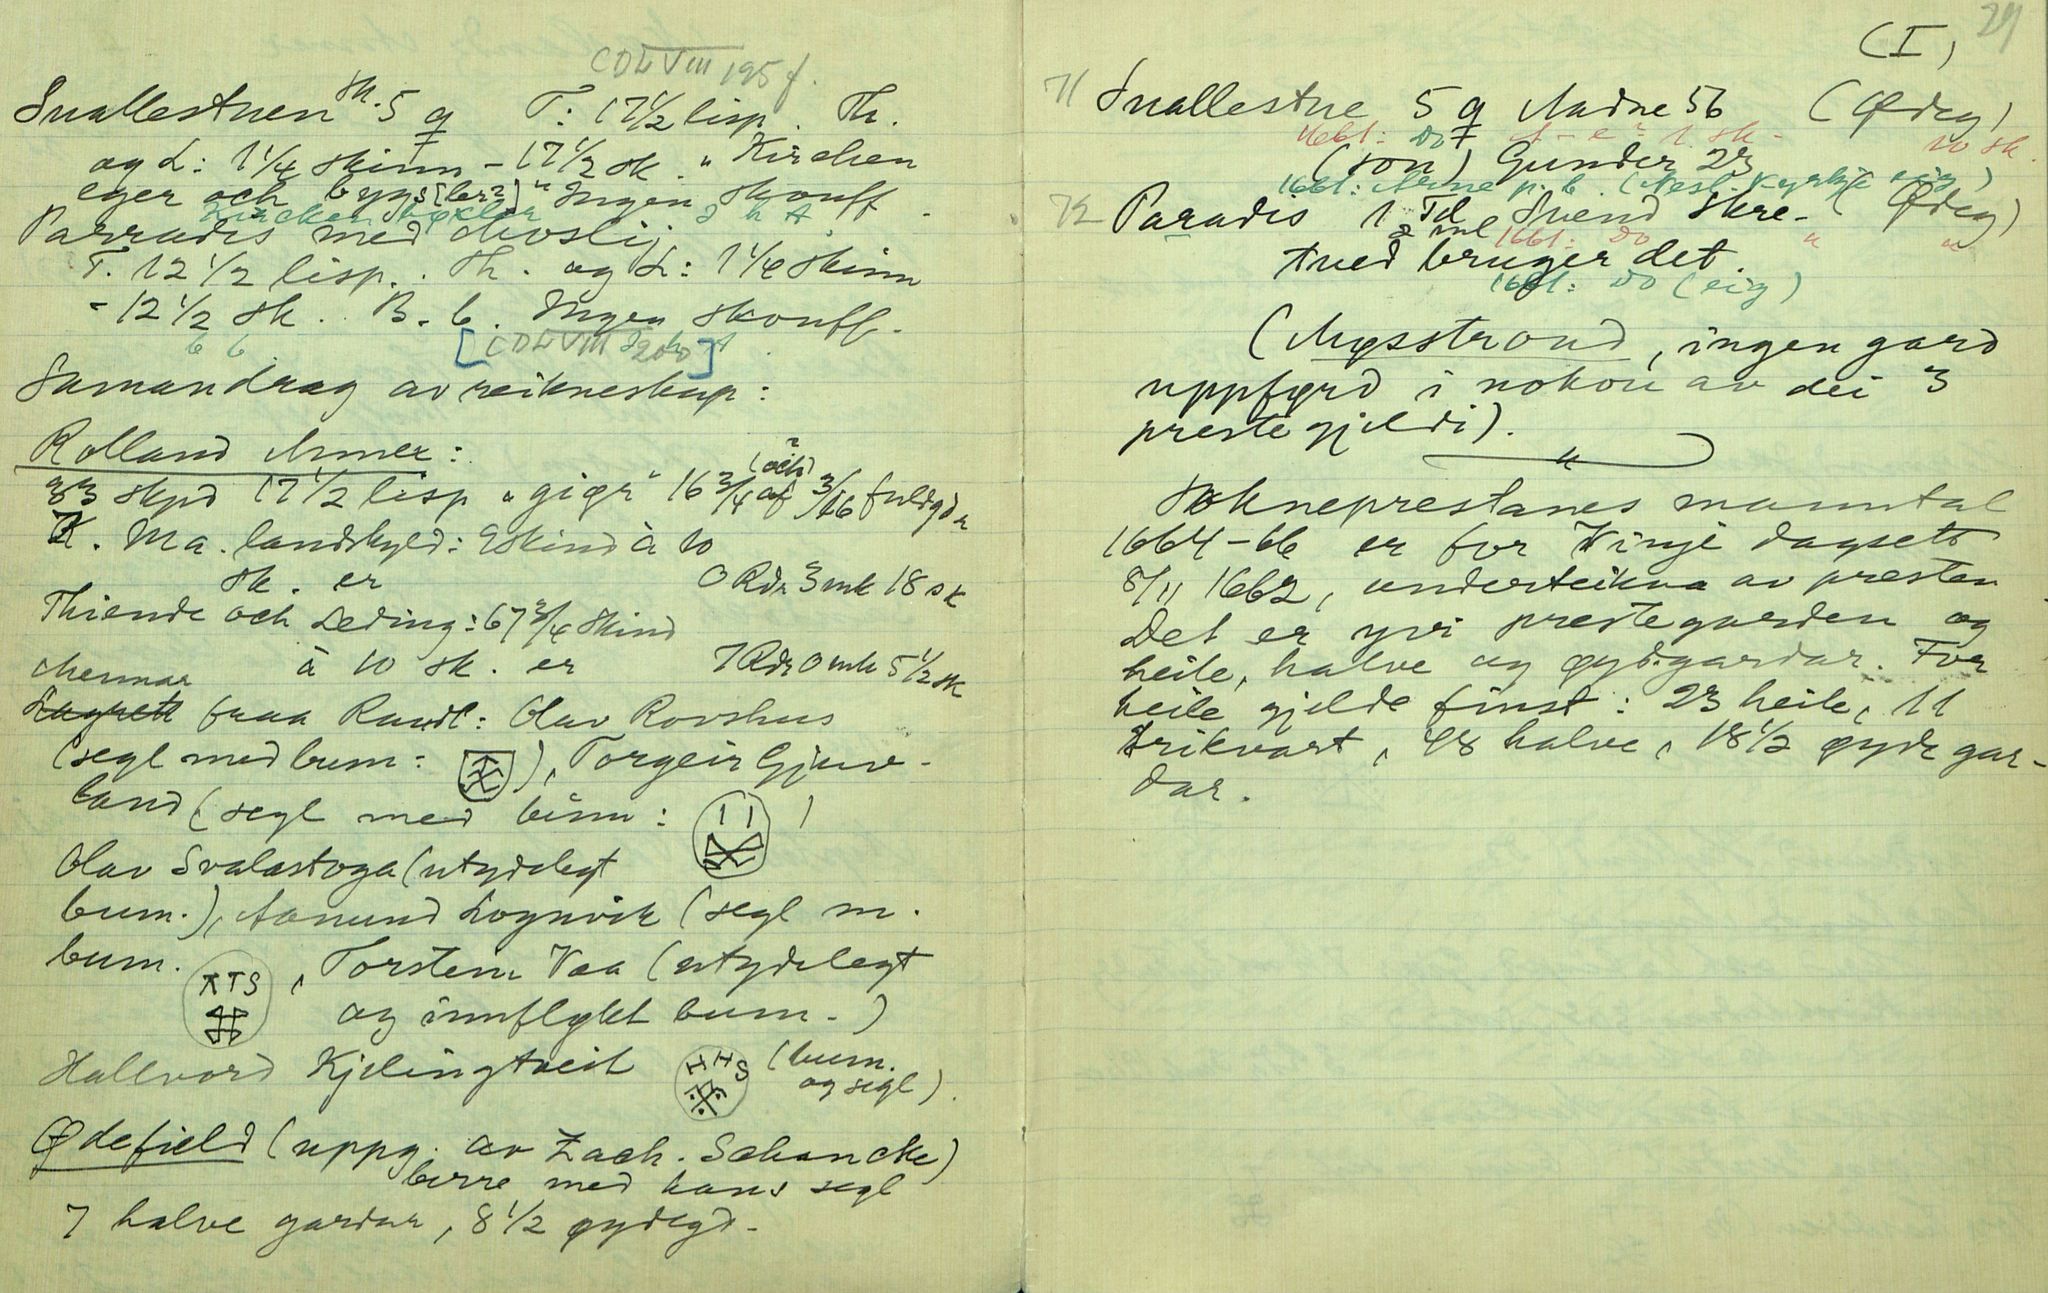 CDLVIII 195 f.
Snallestuen sk. 5 q T: 17 1/2 lisp. Sk.
og L: 1 1/4 skinn - 17 1/2 sk. "Kirchen
eger och bygs[ler?]" Ingen skouff.
Kircken byxler
Parradis med Moslij
T. 12 1/2 lisp. Sk. og L: 1 1/4 skinn
- 12 1/2 sk. B. b. Ingen skouff.
b b
[CDLVIII 200]
Samandrag av reikneskap:
Rolland Annex:
33 skpd 17 1/2 lisp "giør" 16 3/4 (och?) af 3/16 fuldgdr
K. Ma. landskyld: 9 skind à 10
sk. er 0 Rdr 3 mk 18 sk
Thiende och Leding: 67 3/4 skind
à 10 sk. er 7 Rdr 0 mk 5 1/2 sk
Mennar
Lagrett fraa Raudl: Olav Rovshus
(segl med bum: ), Torgeir Gjuv-
land (segl med bum: )
Olav Svalastoga (utydelegt
bum.), Aanund Lognvik (segl m.
bum. ATS, Torstein Vaa (utydelegt
og innfløkt bum.)
Hallvord Kjelingtveit HHS (bum.
og segl).
Ødefield (uppg. av Zach. Schancke)
berre med hans segl
7 halve gardar, 8 1/2 øydegd.
(I, 29
71 Snallestue 5 q Aadne 56 (Ødeg)
1661: Do 1 sk. 10 sk.
(son) Gunder 23
1661: Aadne p. b. (Nesl. Kyrkje eig)
72 Paradis 1 Td 2 mel Svend Skre- (Ødeg)
1661: Do " "
tved bruger det.
1661: Do (eig)
(Møsstrond, ingen gard
uppførd i nokon av dei 3
prestegjeldi).
"
Sokneprestanes manntal
1664-66 er for Vinje dagsett
8/11 1662, underteikna av presten
Det er yvi prestegarden og
heile, halve og øydegardar. For
heile gjelde finst: 23 heile, 11
trikvart, 48 halve, 18 1/2 øyde gar-
dar.